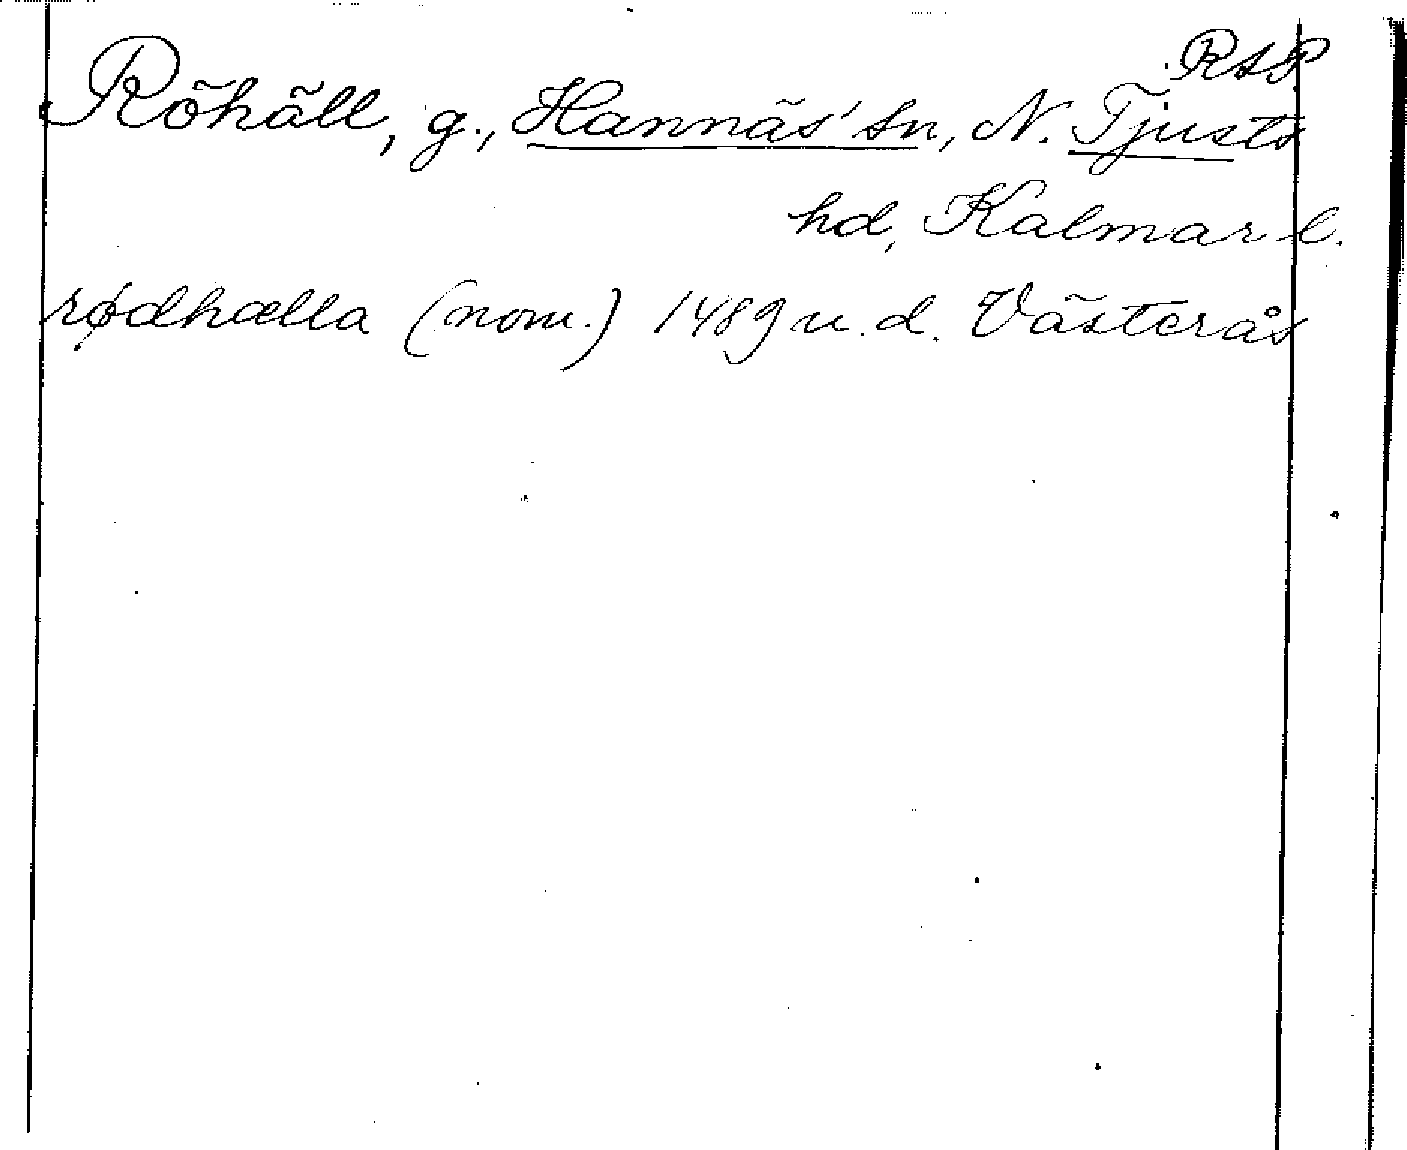 RAP
Röhäll, g., Hannäs' sn, N. Tjusts
hd, Kalmar l.
rødhælla (nom.) 1489 u. d. Västerås